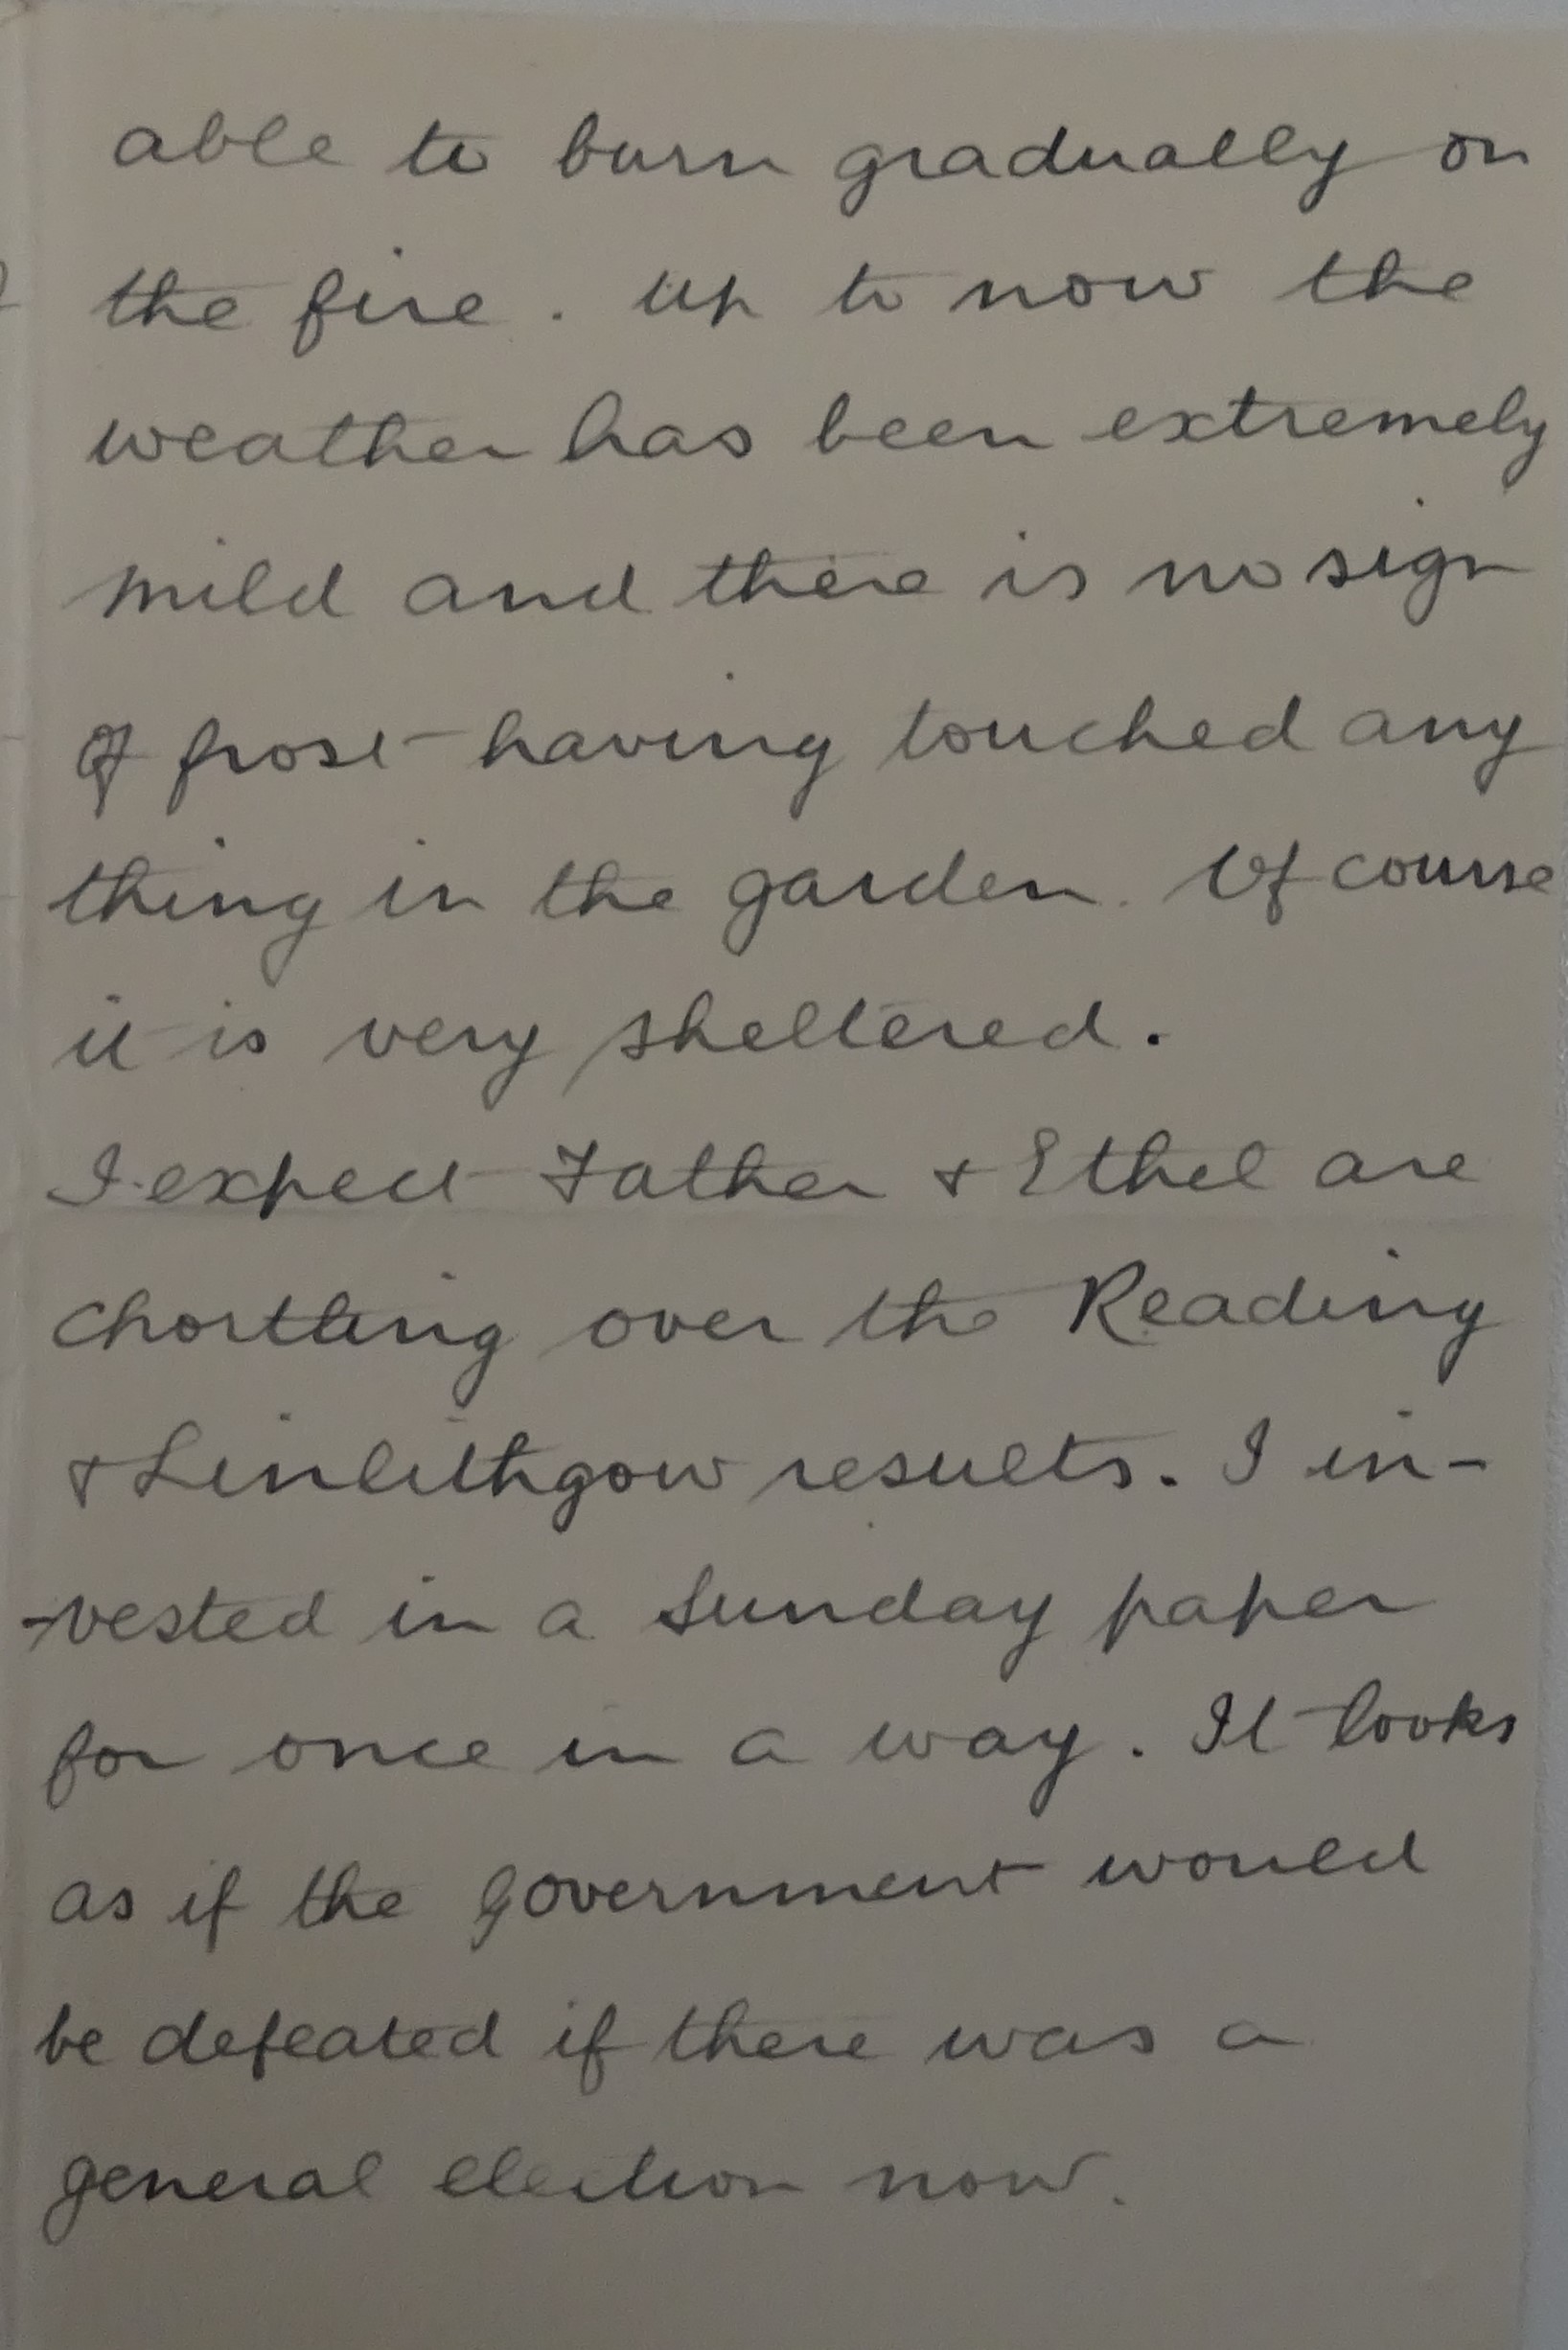 able to burn gradually on
the fire. Up to now the
weather has been extremely
mild and there is no sign
of frost having touched any
thing in the garden. Of course
it is very sheltered.
I expect Father & Ethel are
chortling over the Reading
& Linlithgow results. I in-
-vested in a Sunday paper
for once in a way. It looks
as if the Government would
be defeated if there was a
general election now.